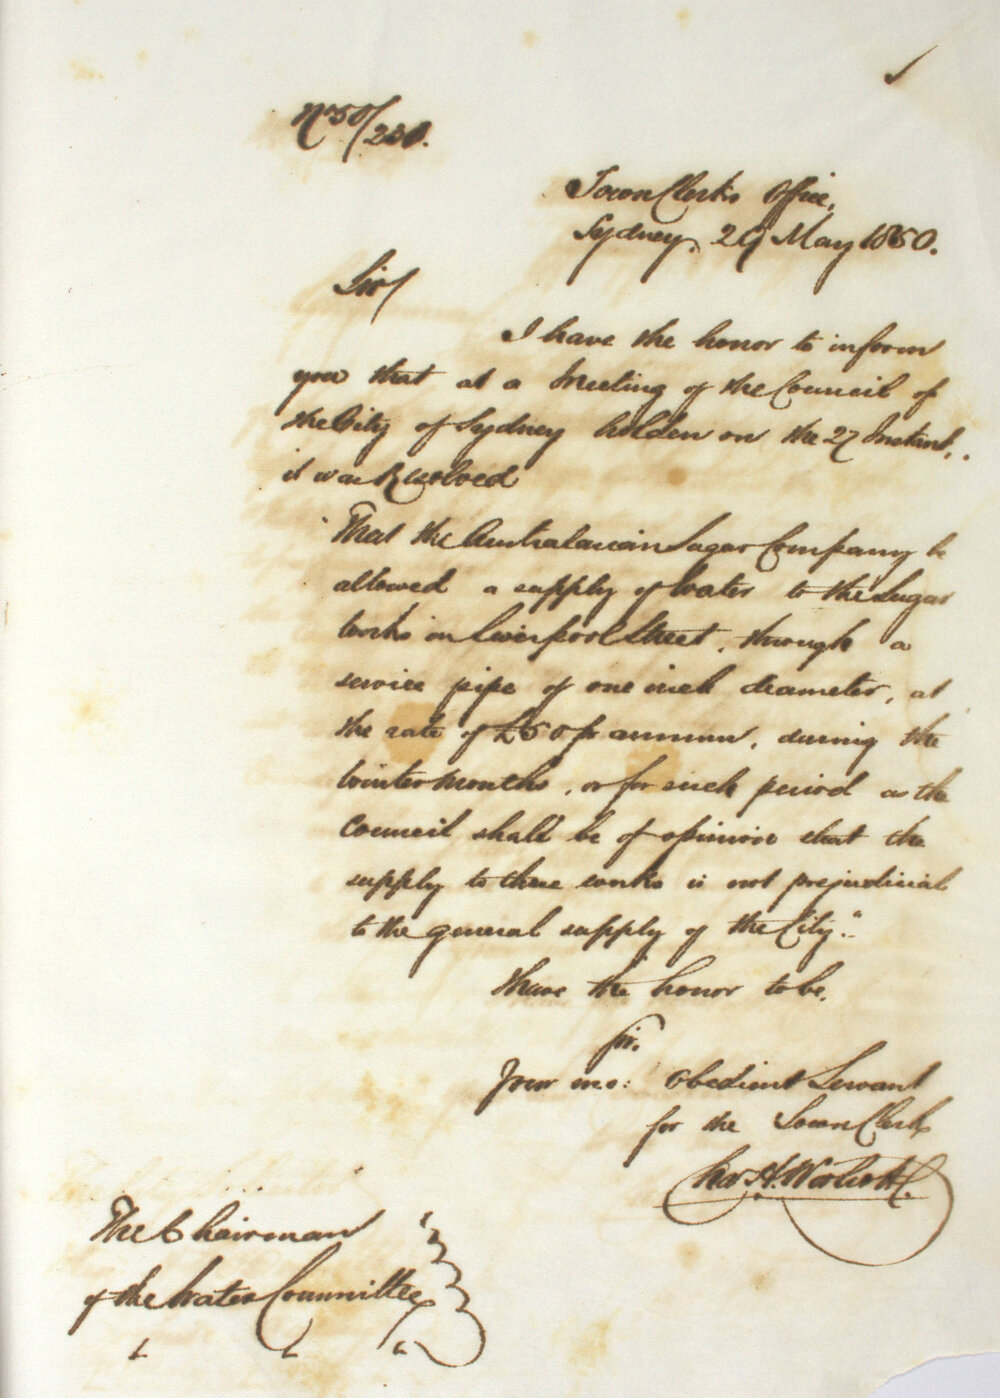 No 50/230.
Town Clerks Office,
Sydney, 29 May 1850.
Sir/
I have the honor to inform
you that at a Meeting of the Council of
the City of Sydney holden on the 27 Instant,
it was Resolved
"That the Australasian Sugar Company be
allowed a supply of Water to the Sugar
Works in Liverpool Street, through a
service pipe of one inch diameter, at
the rate of £50 pr annum, during the
Winter months, or for such period as the
Council shall be of opinion that the
supply to these works is not prejudicial
to the general supply of the City."
I have the honor to be,
Sir,
Your mo: Obedient Servant
for the Town Clerk
Chas H. Woolcott
The Chairman
of the Water Committee